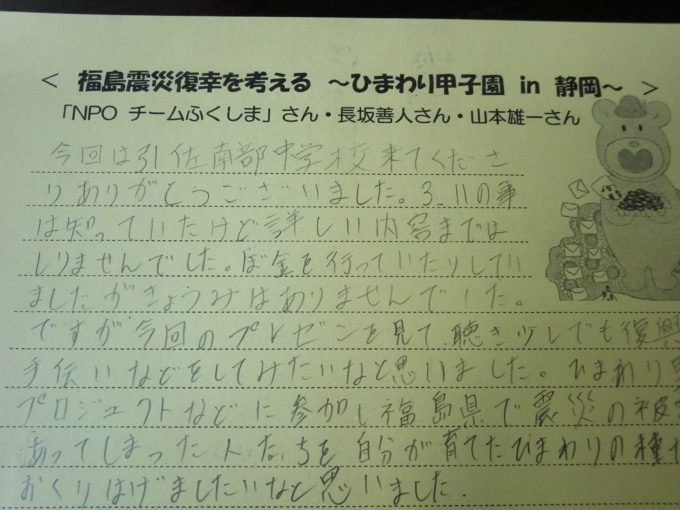 < 福島震災復幸を考える ～ひまわり甲子園 in 静岡～ >
「NPO チームふくしま」さん・長坂善人さん・山本雄一さん
今回は引佐南部中学校来てくださ
りありがとうございました。3.11の事
は知っていたけど詳しい内容までは
しりませんでした。ぼ金を行っていたりしてい
ましたがきょうみはありませんでした。
ですが今回のプレゼンを見て、聴き少しでも復興
手伝いなどをしてみたいなと思いました。ひまわり
プロジェクトなどに参加し福島県で震災の被
あってしまった人たちを自分が育てたひまわりの種
おくりはげましたいなと思いました.